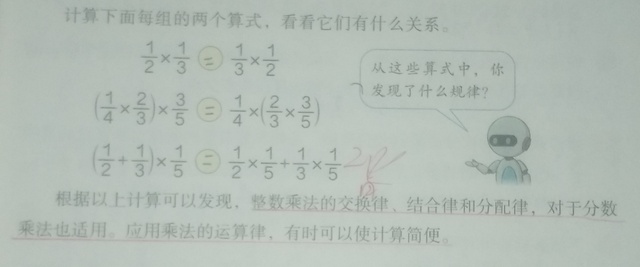 计算下面每组的两个算式，看看它们有什么关系。
1/2 × 1/3 = 1/3 × 1/2
从这些算式中，你
发现了什么规律?
(1/4 × 2/3) × 3/5 = 1/4 × (2/3 × 3/5)
(1/2 + 1/3) × 1/5 = 1/2 × 1/5 + 1/3 × 1/5
根据以上计算可以发现，整数乘法的交换律、结合律和分配律，对于分数
乘法也适用。应用乘法的运算律，有时可以使计算简便。